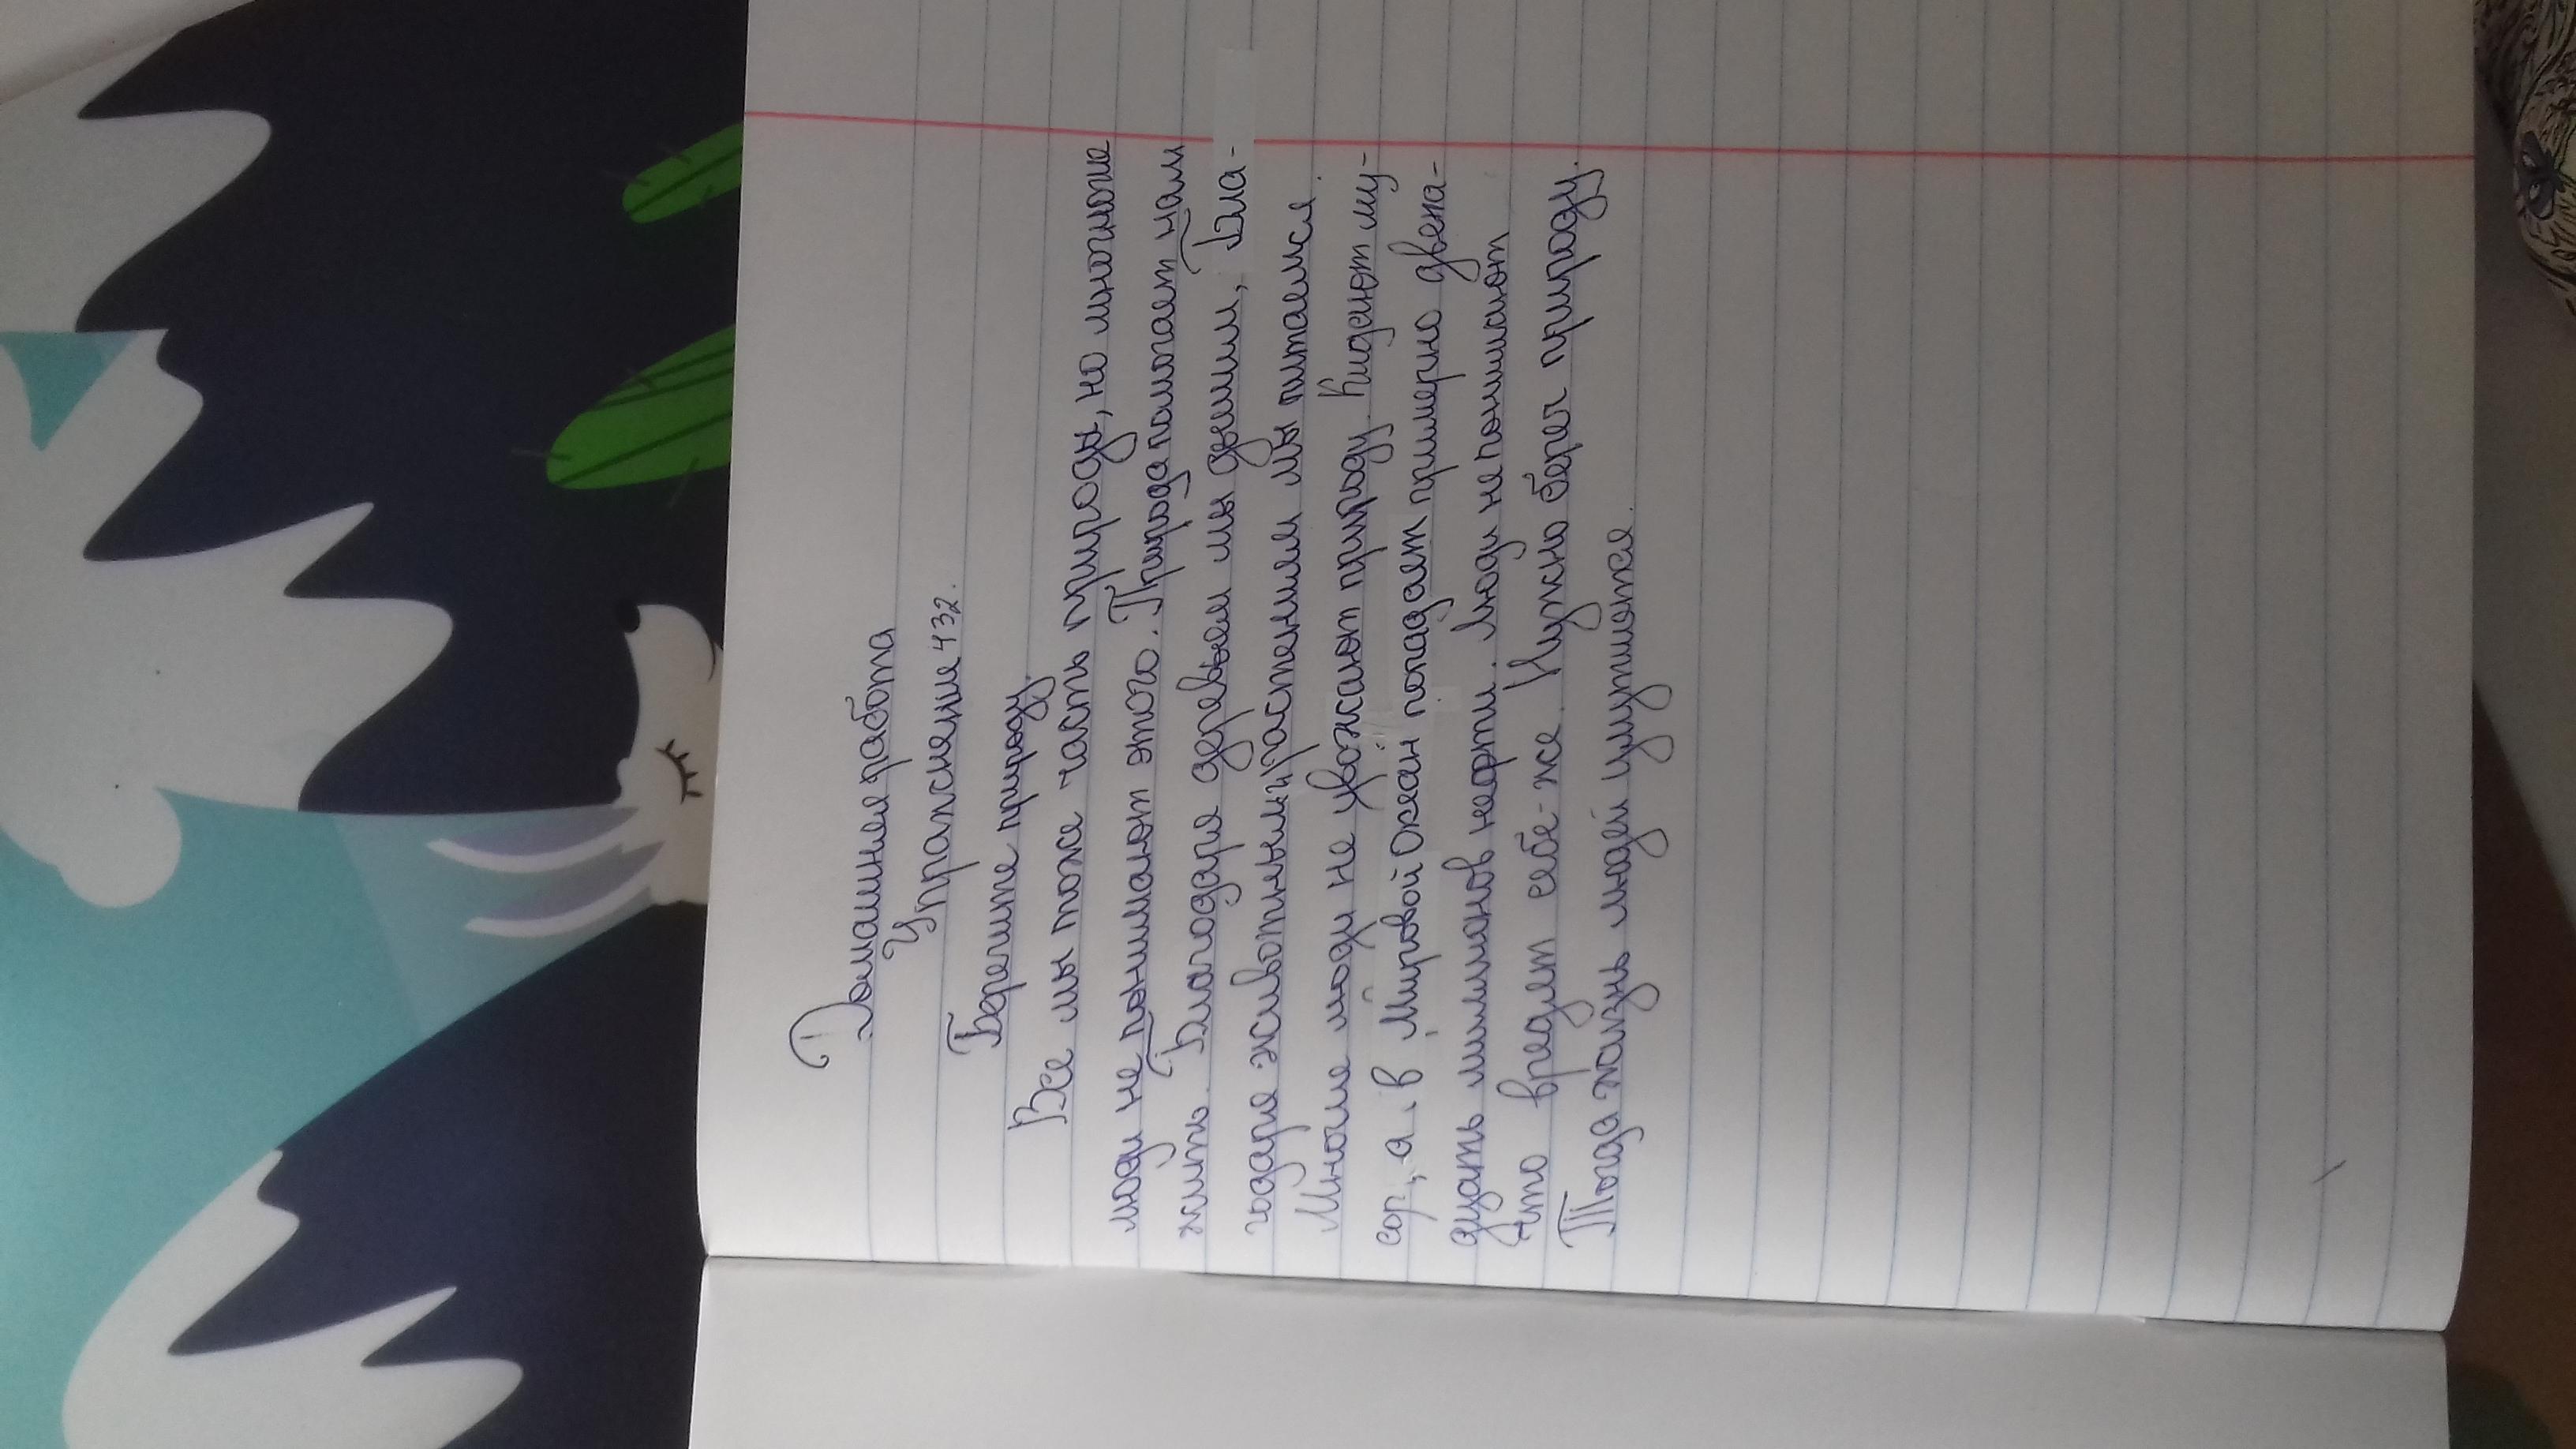 Домашняя работа
Упражнение 432.
Берегите природу.
Все мы тоже часть природы, но многие
люди не понимают этого. Природа помогает нам
жить. Благодаря деревьям мы дышим, Бла-
годаря животным и растениям мы питаемся.
Многие люди не уважают природу. Кидают му-
сор, а в Мировой Океан попадает примерно двена-
дцать миллионов нефти. Люди не понимают
что вредят себе-же. Нужно береч природу.
Тогда жизнь людей улутшится.